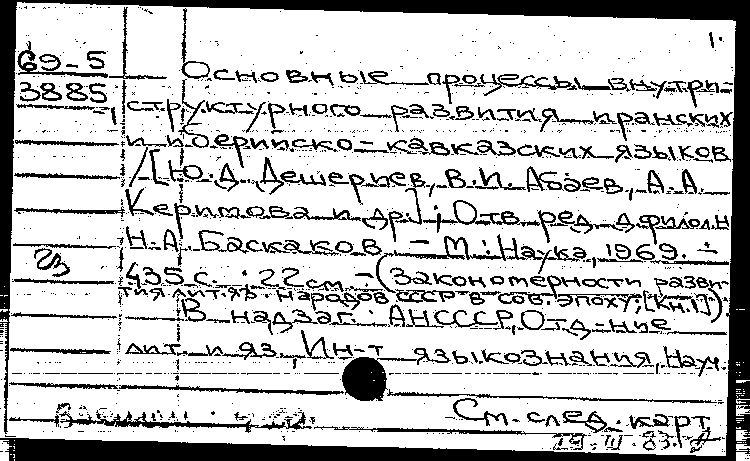 1.
69-5
3885
Основные процессы внутри-
структурного развития иранских
и иберийско-кавказских языков
/[Ю.Д. Дешериев, В.И. Абаев, А.А.
Керимова и др.]; Отв. ред. д.филол.н
Н.А. Баскаков. - М.: Наука, 1969. -
435 с.; 22 см. - (Закономерности разви-
тия лит. яз. народов СССР в сов. эпоху; [Кн.1]).
В надзаг.: АН СССР, Отд-ние
лит. и яз., Ин-т языкознания, Науч.
См. след. карт
29.III.83.